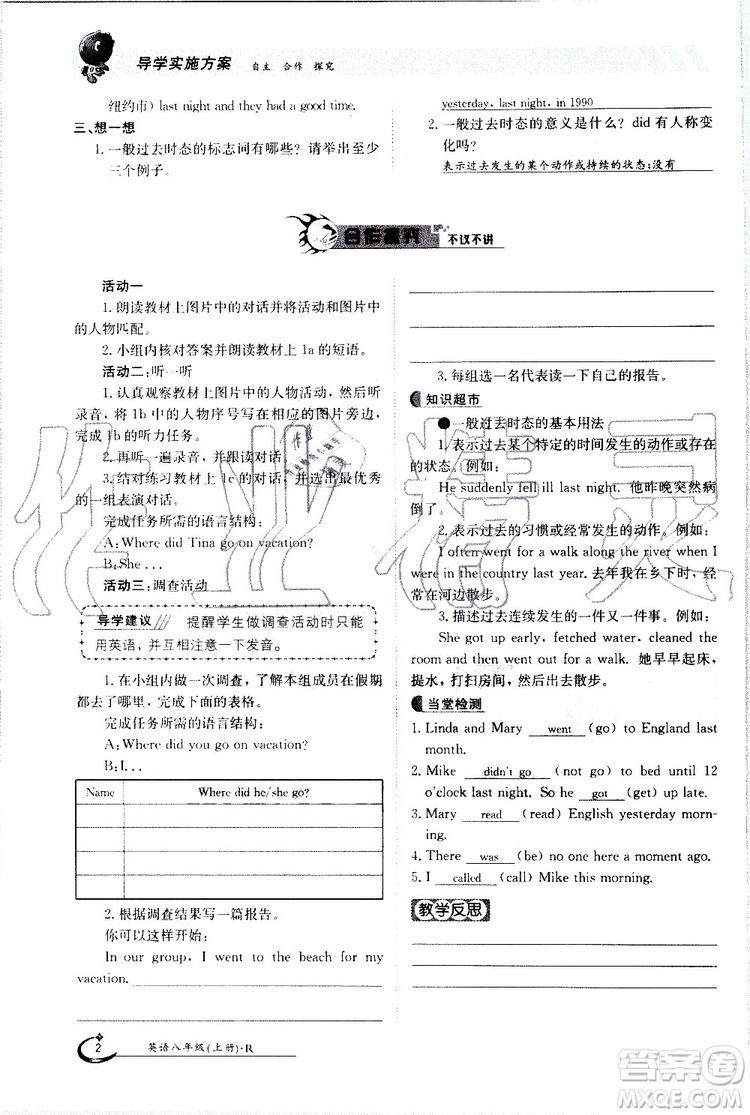 导学实施方案 自主 合作 探究
纽约市) last night and they had a good time.
三、想一想
1. 一般过去时态的标志词有哪些？请举出至少
三个例子。
yesterday, last night, in 1990
2. 一般过去时态的意义是什么？did 有人称变
化吗？
表示过去发生的某个动作或持续的状态;没有
合作探究 不议不讲
活动一
1. 朗读教材上图片中的对话并将活动和图片中
的人物匹配。
2. 小组内核对答案并朗读教材上 1a 的短语。
活动二:听一听
1. 认真观察教材上图片中的人物活动，然后听
录音，将 1b 中的人物序号写在相应的图片旁边，
完成 1b 的听力任务。
2. 再听一遍录音，并跟读对话。
3. 结对练习教材上 1c 的对话，并选出最优秀
的一组表演对话。
完成任务所需的语言结构:
A: Where did Tina go on vacation?
B: She...
活动三:调查活动
导学建议 提醒学生做调查活动时只能
用英语，并互相注意一下发音。
1. 在小组内做一次调查，了解本组成员在假期
都去了哪里，完成下面的表格。
完成任务所需的语言结构:
A: Where did you go on vacation?
B: I...
Name Where did he/she go?
2. 根据调查结果写一篇报告。
你可以这样开始:
In our group, I went to the beach for my
vacation.
3. 每组选一名代表读一下自己的报告。
知识超市
●一般过去时态的基本用法
1. 表示过去某个特定的时间发生的动作或存在
的状态。例如:
He suddenly fell ill last night. 他昨晚突然病
倒了。
2. 表示过去的习惯或经常发生的动作。例如:
I often went for a walk along the river when I
were in the country last year. 去年我在乡下时，经
常在河边散步。
3. 描述过去连续发生的一件又一件事。例如:
She got up early, fetched water, cleaned the
room and then went out for a walk. 她早早起床，
提水，打扫房间，然后出去散步。
当堂检测
1. Linda and Mary went (go) to England last
month.
2. Mike didn't go (not go) to bed until 12
o'clock last night. So he got (get) up late.
3. Mary read (read) English yesterday morn-
ing.
4. There was (be) no one here a moment ago.
5. I called (call) Mike this morning.
教学反思
2 英语八年级(上册)·R
作业精灵
答案圈